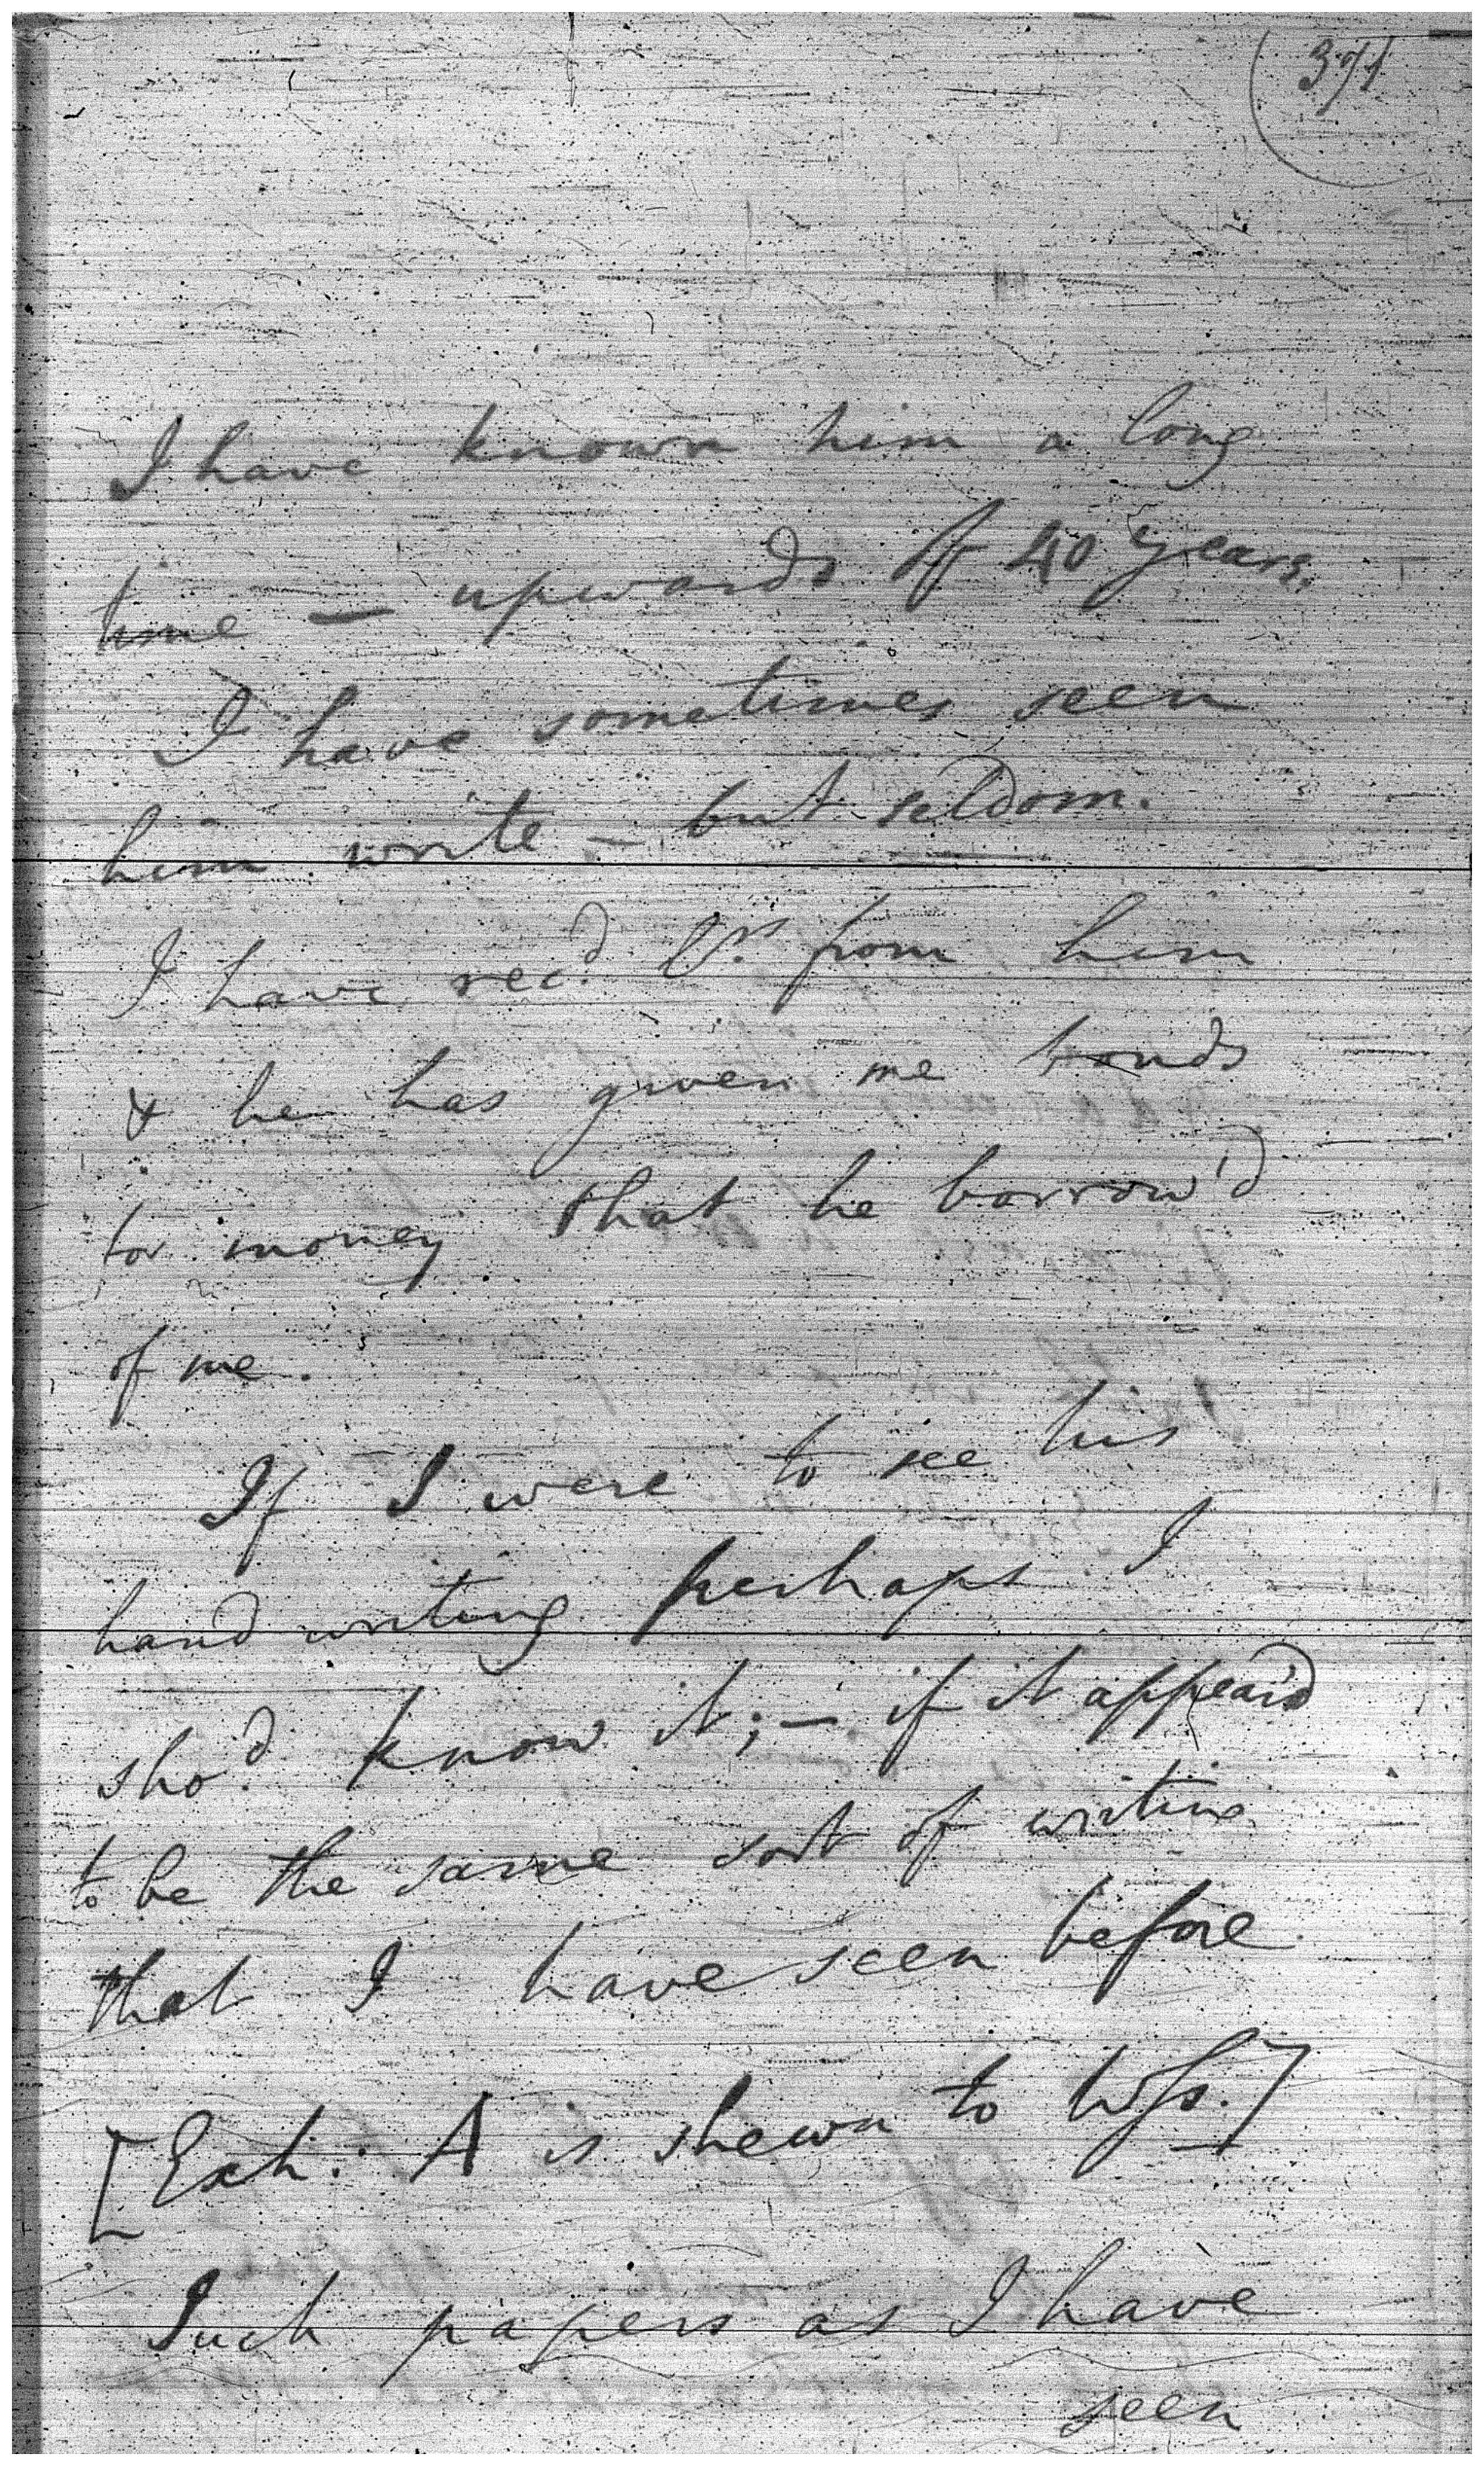 I have known him a long
time — upwards of 40 years.
I have sometimes seen
him write — but seldom.
I have rec'd from him
& he has given me bonds
for money that he borrow'd
of me.
If I were to see his
hand writing perhaps I
sho'd know it; — if it appear'd
to be the same sort of writing
that I have seen before
[Exh: A is shewn to Wſs.]
Such papers as I have
seen